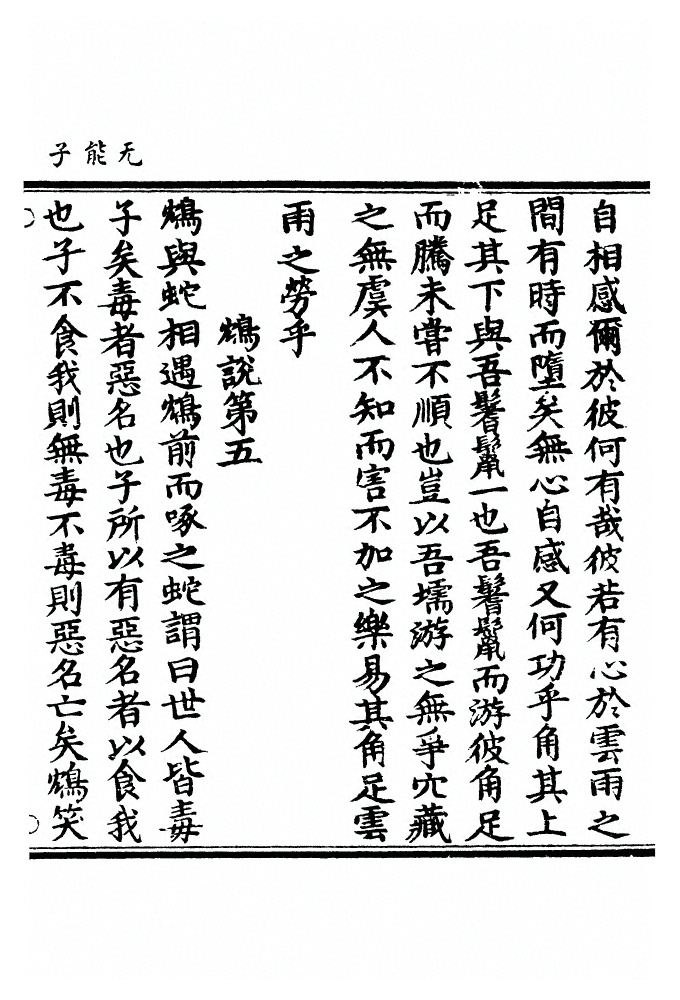 无能子
自相感爾於彼何有哉彼若有心於雲雨之
間有時而墮矣無心自感又何功乎角其上
足其下與吾鬐鬣一也吾鬐鬣而游彼角足
而騰未嘗不順也豈以吾壖游之無爭穴藏
之無虞人不知而害不加之樂易其角足雲
雨之勞乎
鴆說第五
鴆與蛇相遇鴆前而啄之蛇謂曰世人皆毒
子矣毒者惡名也子所以有惡名者以食我
也子不食我則無毒不毒則惡名亡矣鴆笑